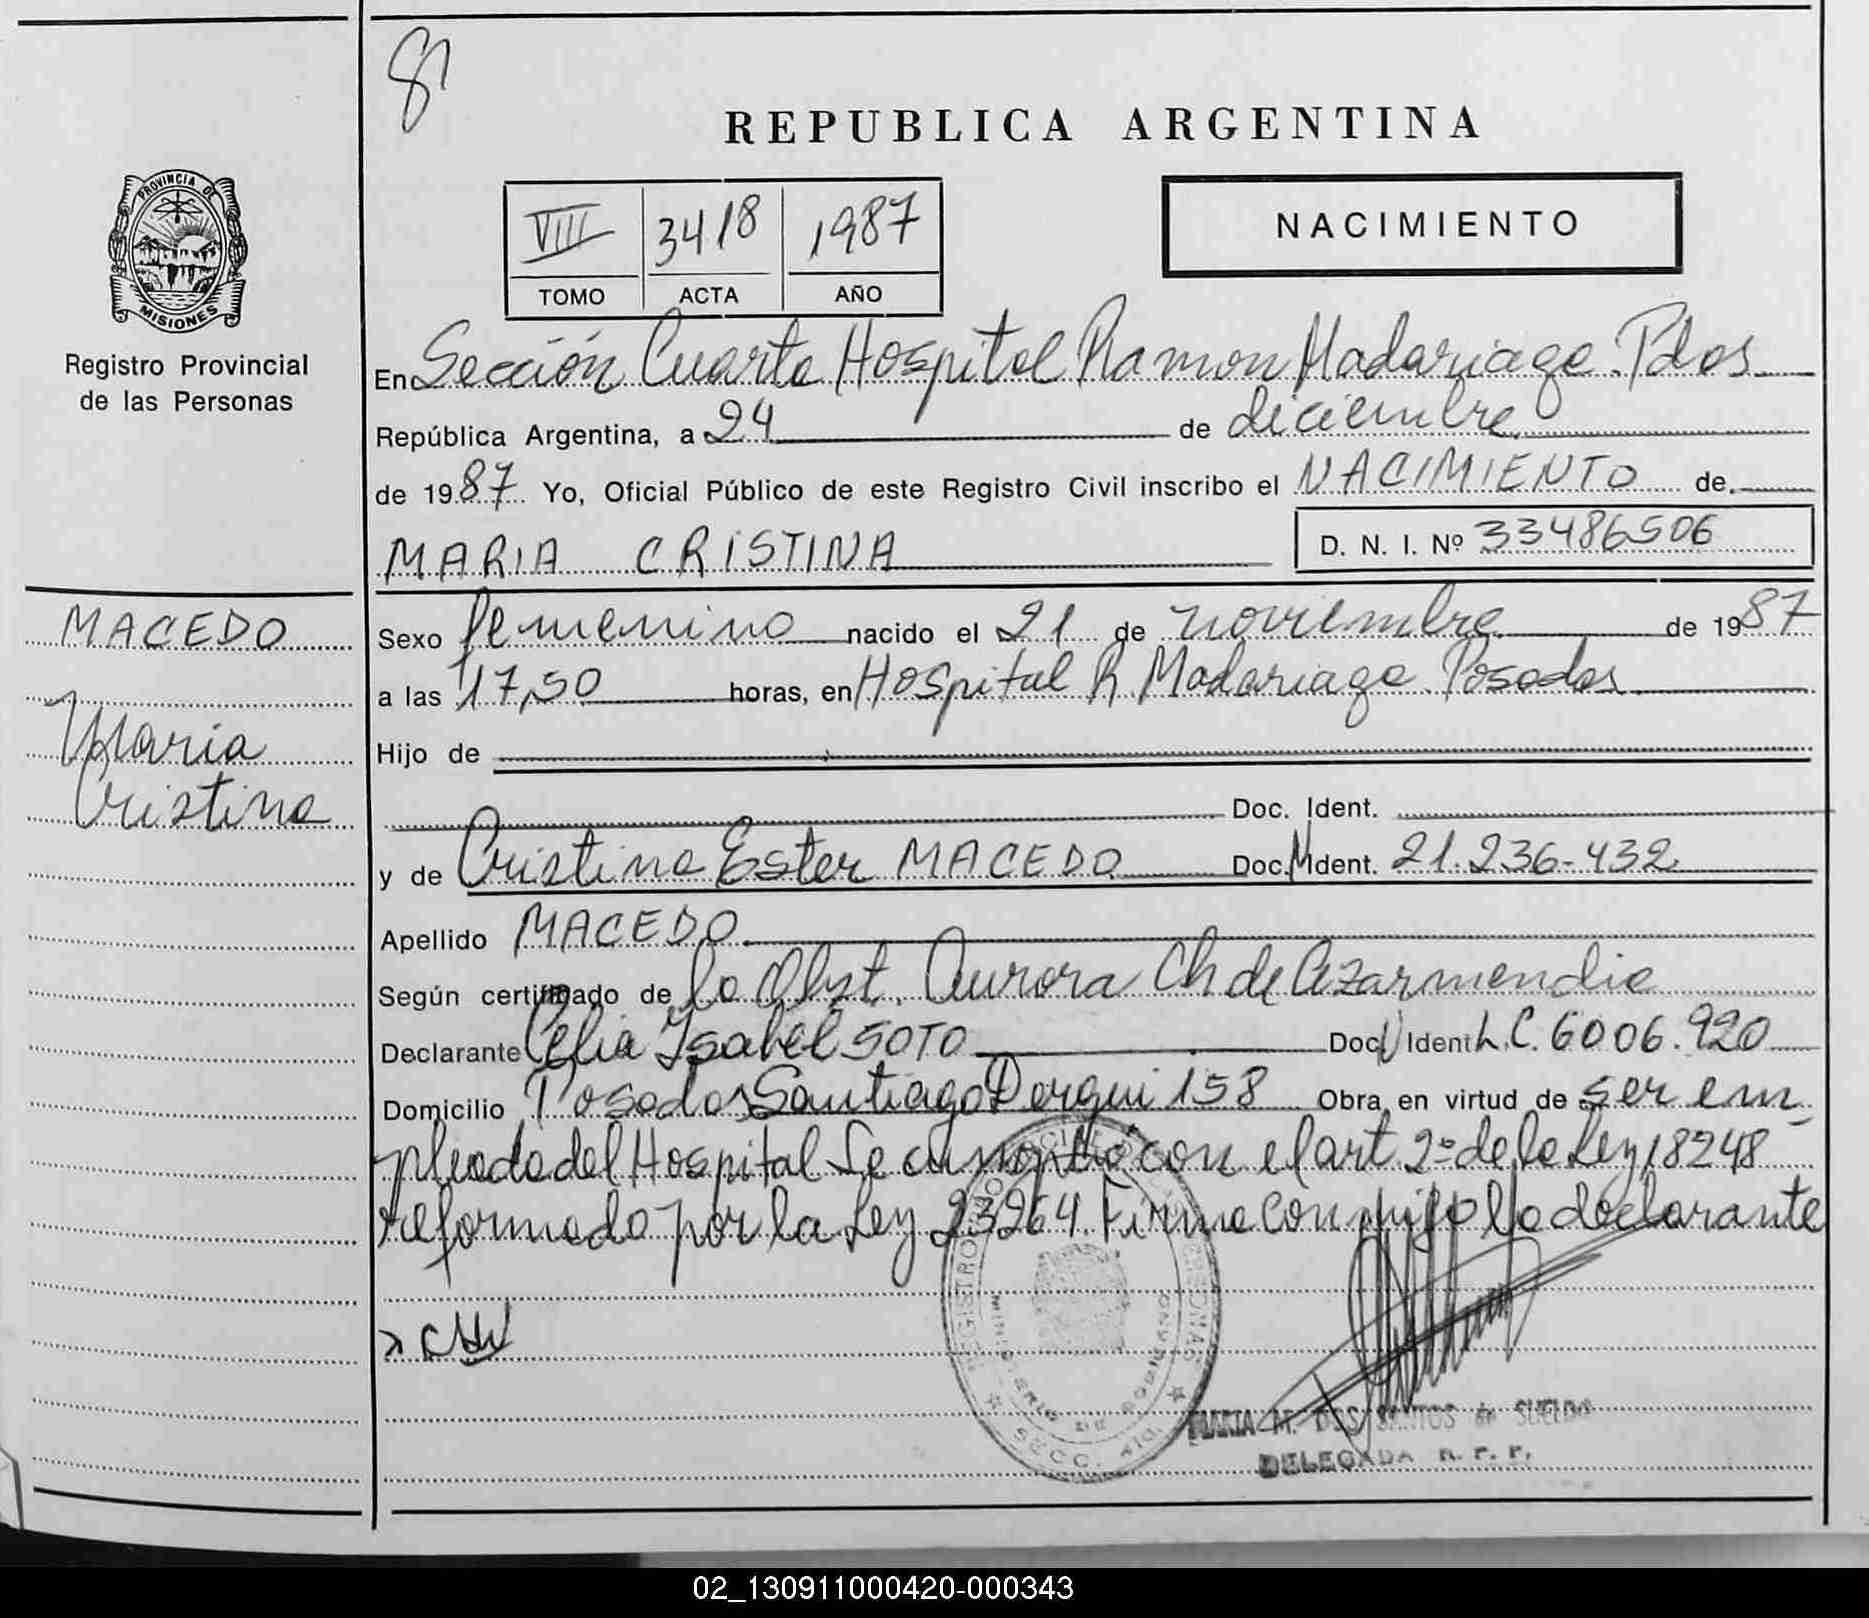 81
REPUBLICA ARGENTINA
PROVINCIA DE
MISIONES
Registro Provincial
de las Personas
VIII 3418 1987
TOMO ACTA AÑO
NACIMIENTO
En Sección Cuarta Hospital Ramon Madariaga. Pdas.
República Argentina, a 24 de diciembre
de 1987 Yo, Oficial Público de este Registro Civil inscribo el NACIMIENTO de
MARIA CRISTINA D. N. I. Nº 33486506
MACEDO
Maria
Cristina
Sexo femenino nacido el 21 de noviembre de 1987
a las 17,50 horas, en Hospital R. Madariaga. Posadas
Hijo de
Doc. Ident.
y de Cristina Ester MACEDO Doc. Ident. 21.236-432
Apellido MACEDO
Según certificado de la Obst. Aurora Ch de Azarmendia
Declarante Celia Isabel SOTO Doc. Ident. L.C. 6006.920
Domicilio Posadas Santiago Derqui 158 Obra en virtud de ser em-
pleada del Hospital Se cumplió con el art. 2º de la Ley 18248
reformado por la Ley 23264. Firma conmigo la declarante
MARIA M. DOS SANTOS de SUELDO
DELEGADA R. P. P.
02_130911000420-000343